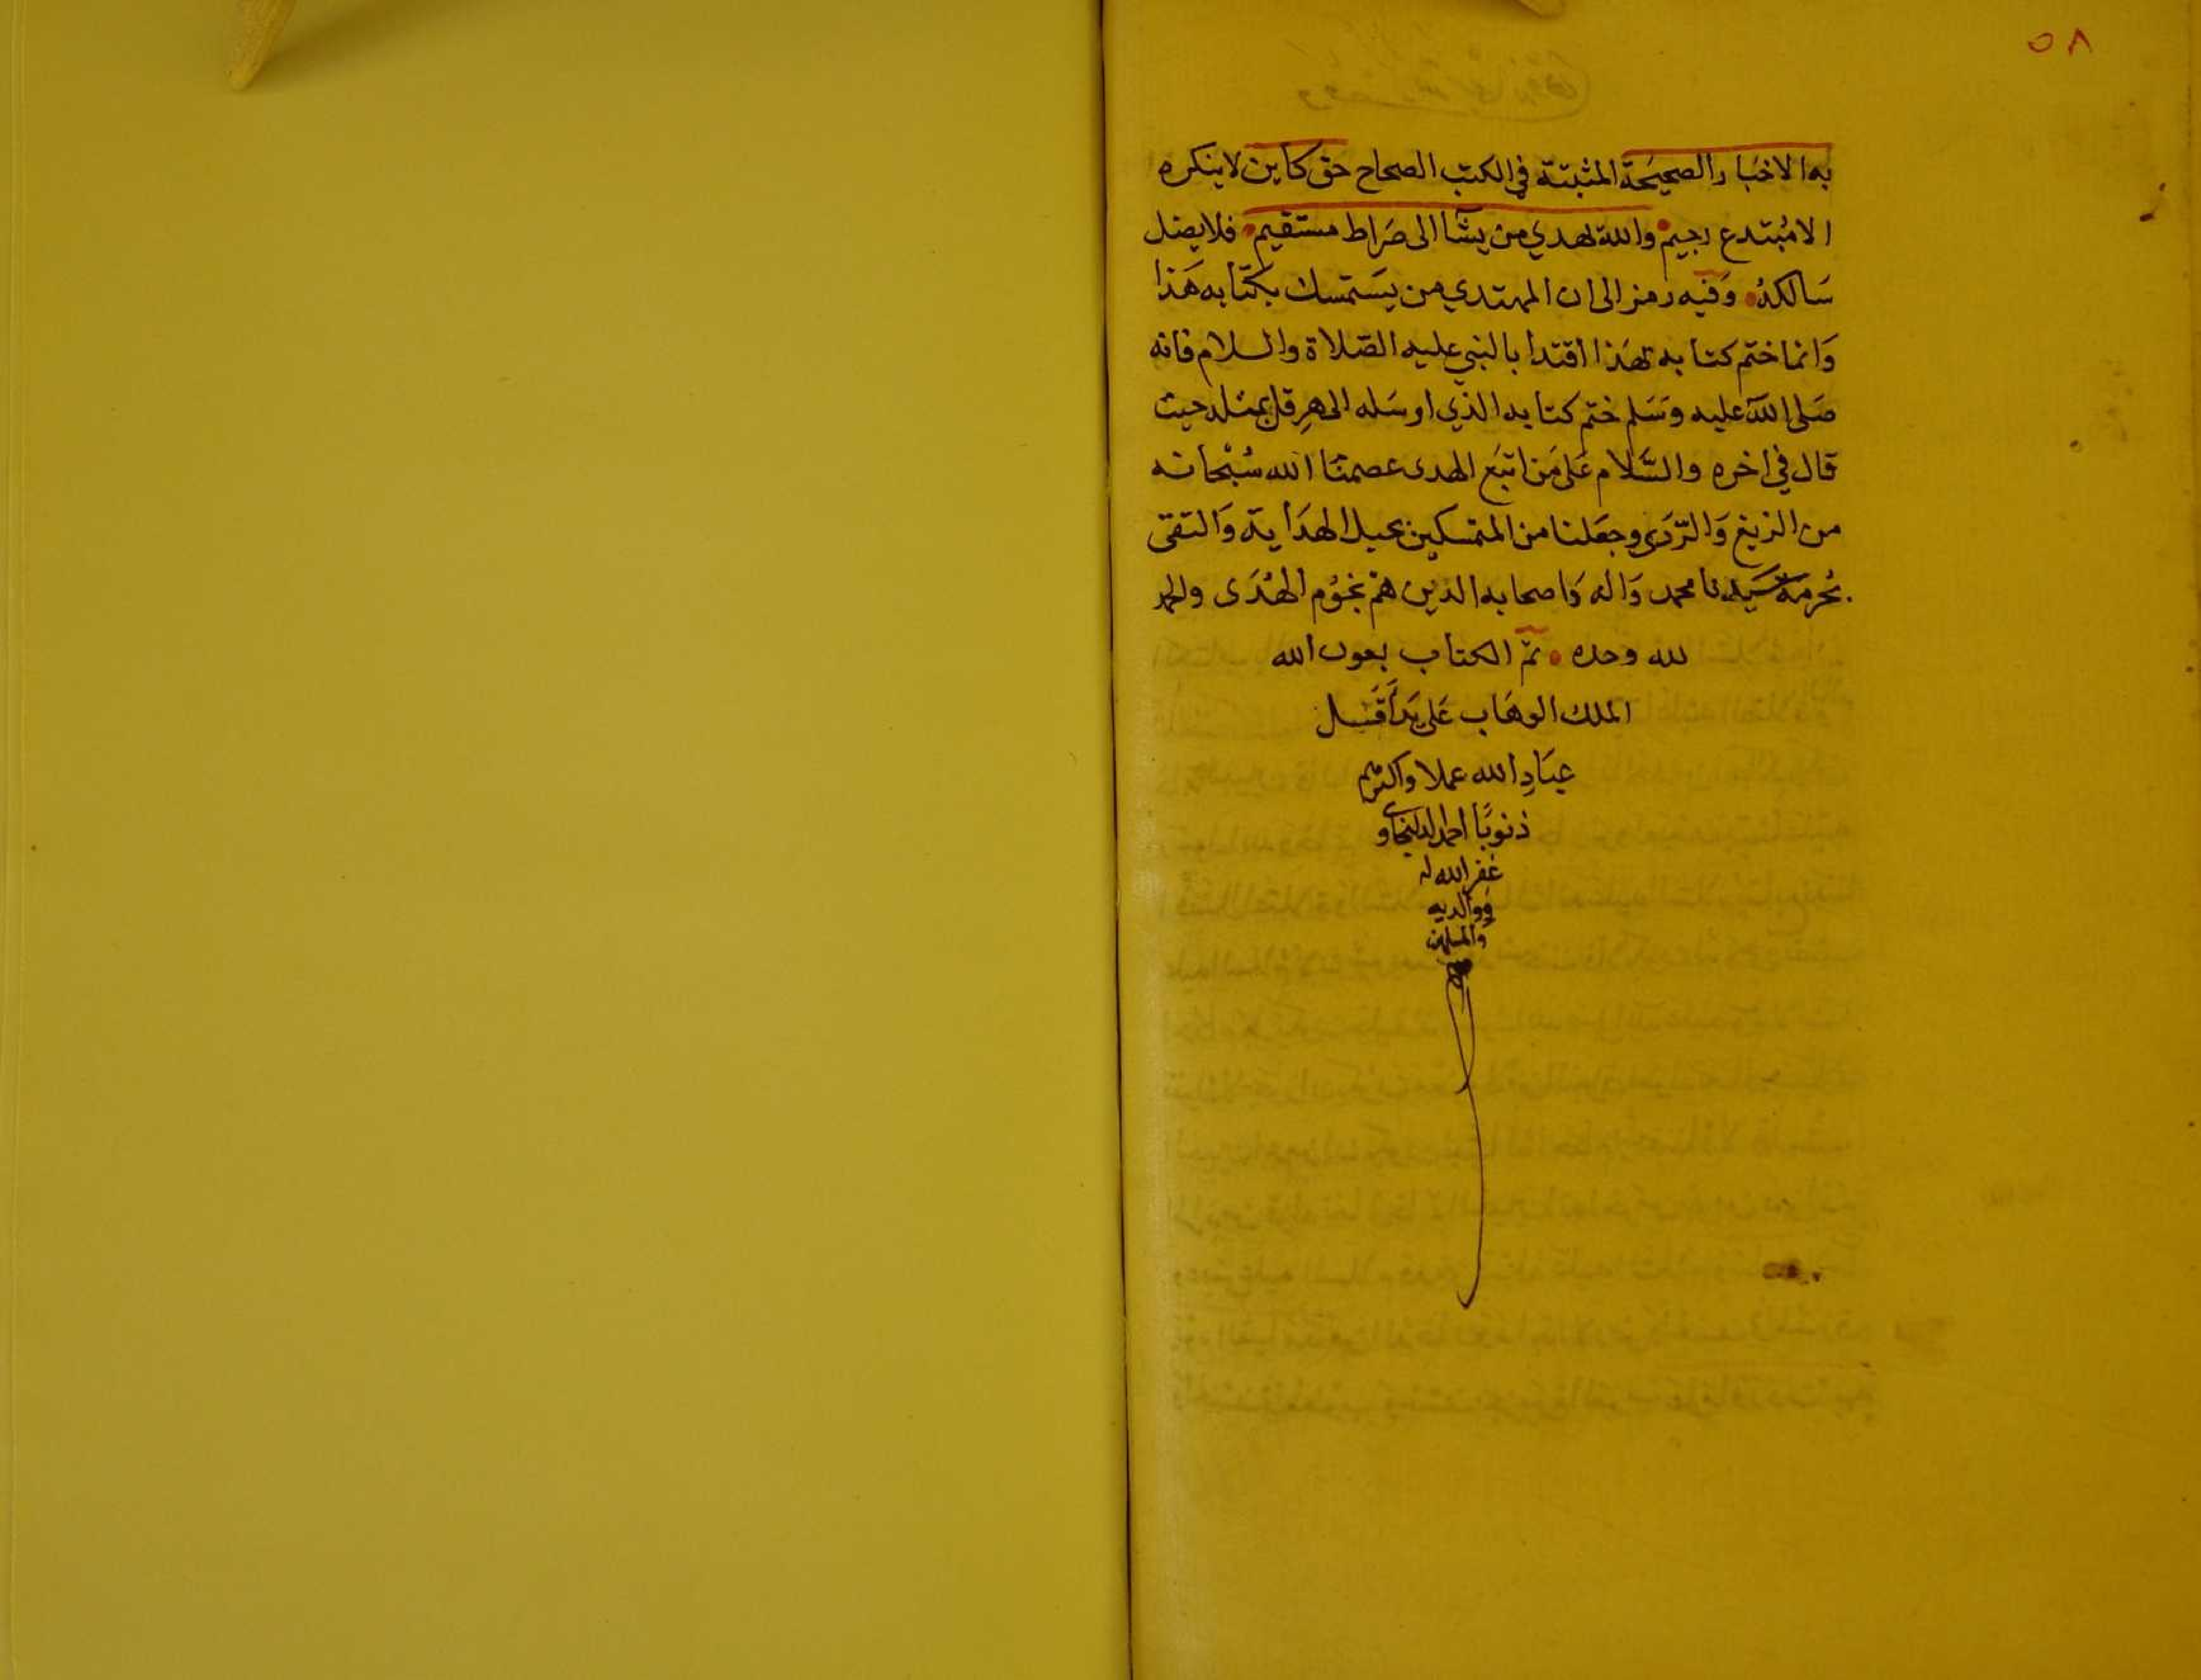 ٥٨
به الاخبار الصحيحة المثبتة في الكتب الصحاح حق كاين لا ينكره
الا مُبتدع رجيم والله يهدي من يشآ الى صَراط مستقيم فلا يضل
سَالكهُ وَفيه رمز الى ان المهتدي من يسَتمسك بكتَابه هَذا
وَانما ختم كتابه بهذا اقتدا بالنبي عليه الصّلاة والسلام فانه
صَلى الله عليه وَسَلم ختم كتابه الذي ارسَله الى هِرقل بمثله حيث
قال في اخره والسَّلام عَلى مَن اتبَع الهدى عصمنَا الله سُبْحانه
من الزيغ وَالرّدَى وجعَلنا من المتمسكين بحبل الهدَاية وَالتقى
بحُرمَة سَيدنا محمد وَاله وَاصحابه الذين همْ نجُوُم الهُدَى والحمد
لله وحده تمّ الكتاب بعون الله
الملك الوهَاب عَلى يَد أقَل
عبَادِ الله عملا واكثرهم
ذنوبًا احمد
غفر الله له
ووالديه
والمسلمين